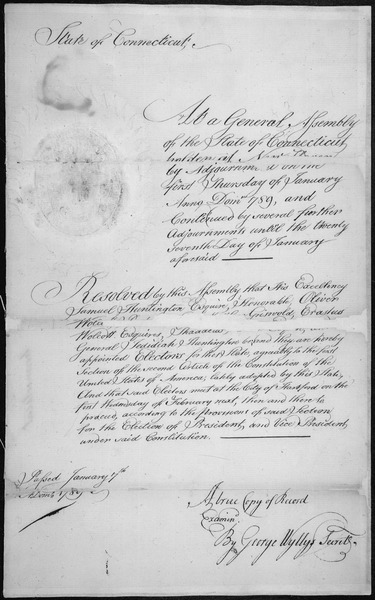 State of Connecticut,
At a General Assembly
of the State of Connecticut
holden at New
by Adjournment on the
first Thursday of January
Anno Domi 1789, and
Continued by several further
Adjournments until the twenty
Seventh Day of January
aforesaid
Resolved by this Assembly that His Excellency
Samuel Huntington Esquire, Honorable, Oliver
Wolcott Esquires, Thaddeus Griswold, Erastus
General Jedidiah Huntington be and they are hereby
appointed Electors for this State, agreeably to the first
Section of the second Article of the Constitution of the
United States of America, lately adopted by this State,
And that said Electors meet at the City of Hartford on the
first Wednesday of February next, then and there to
proceed, according to the provisions of said Section
for the Election of President, and Vice President,
under said Constitution.
Passed January 7th
A Domi 1789
A true Copy of Record
Examind
By George Wyllys Secrety